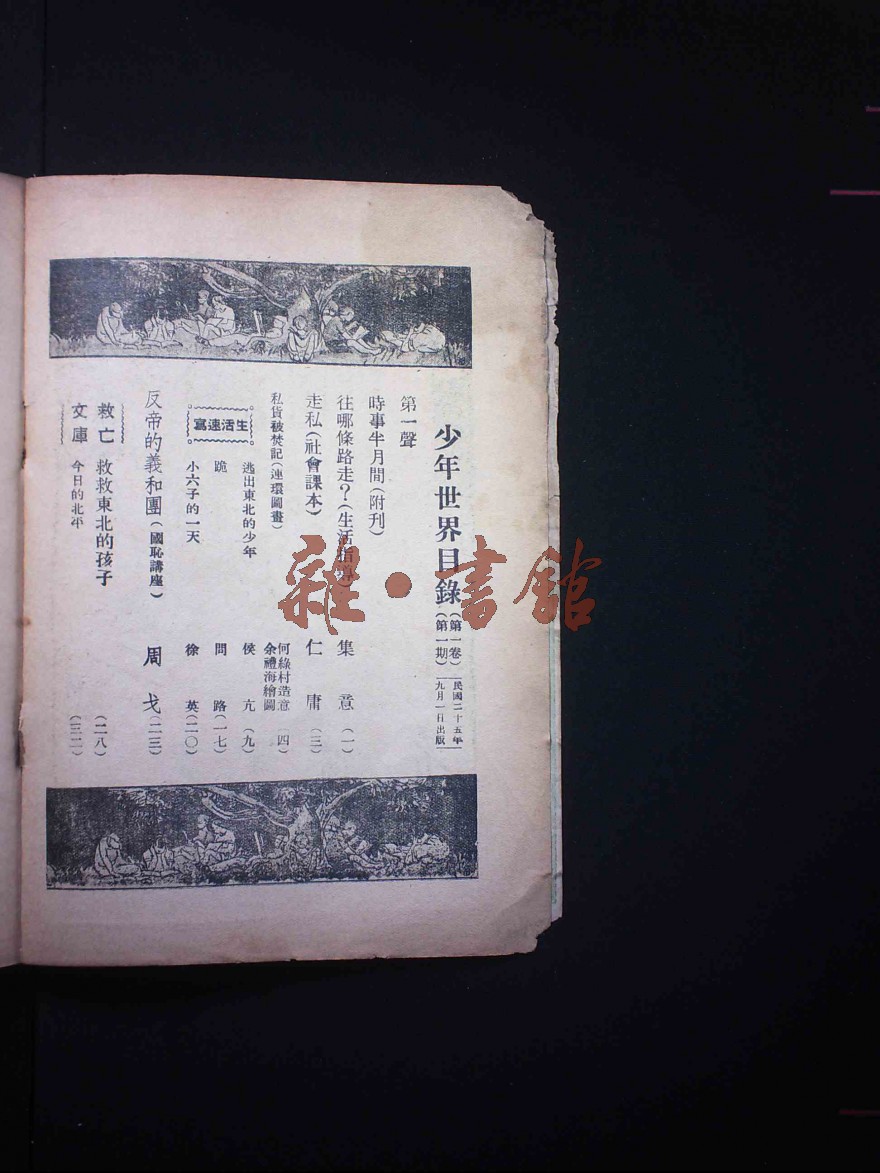 少年世界目錄（第一卷 第一期）民國二十五年九月一日出版
第一聲
時事半月間（附刊）
往哪條路走？（生活指導） 集意（一）
走私（社會課本） 仁庸（三）
私貨被焚記（連環圖畫） 何綠村造意 余禮海繪圖 四）
生活速寫
逃出東北的少年 侯亢（九）
跪 問路（一七）
小六子的一天 徐英（二〇）
反帝的義和團（國恥講座） 周戈（二三）
救亡文庫
救救東北的孩子（二八）
今日的北平（三二）
雜·書館